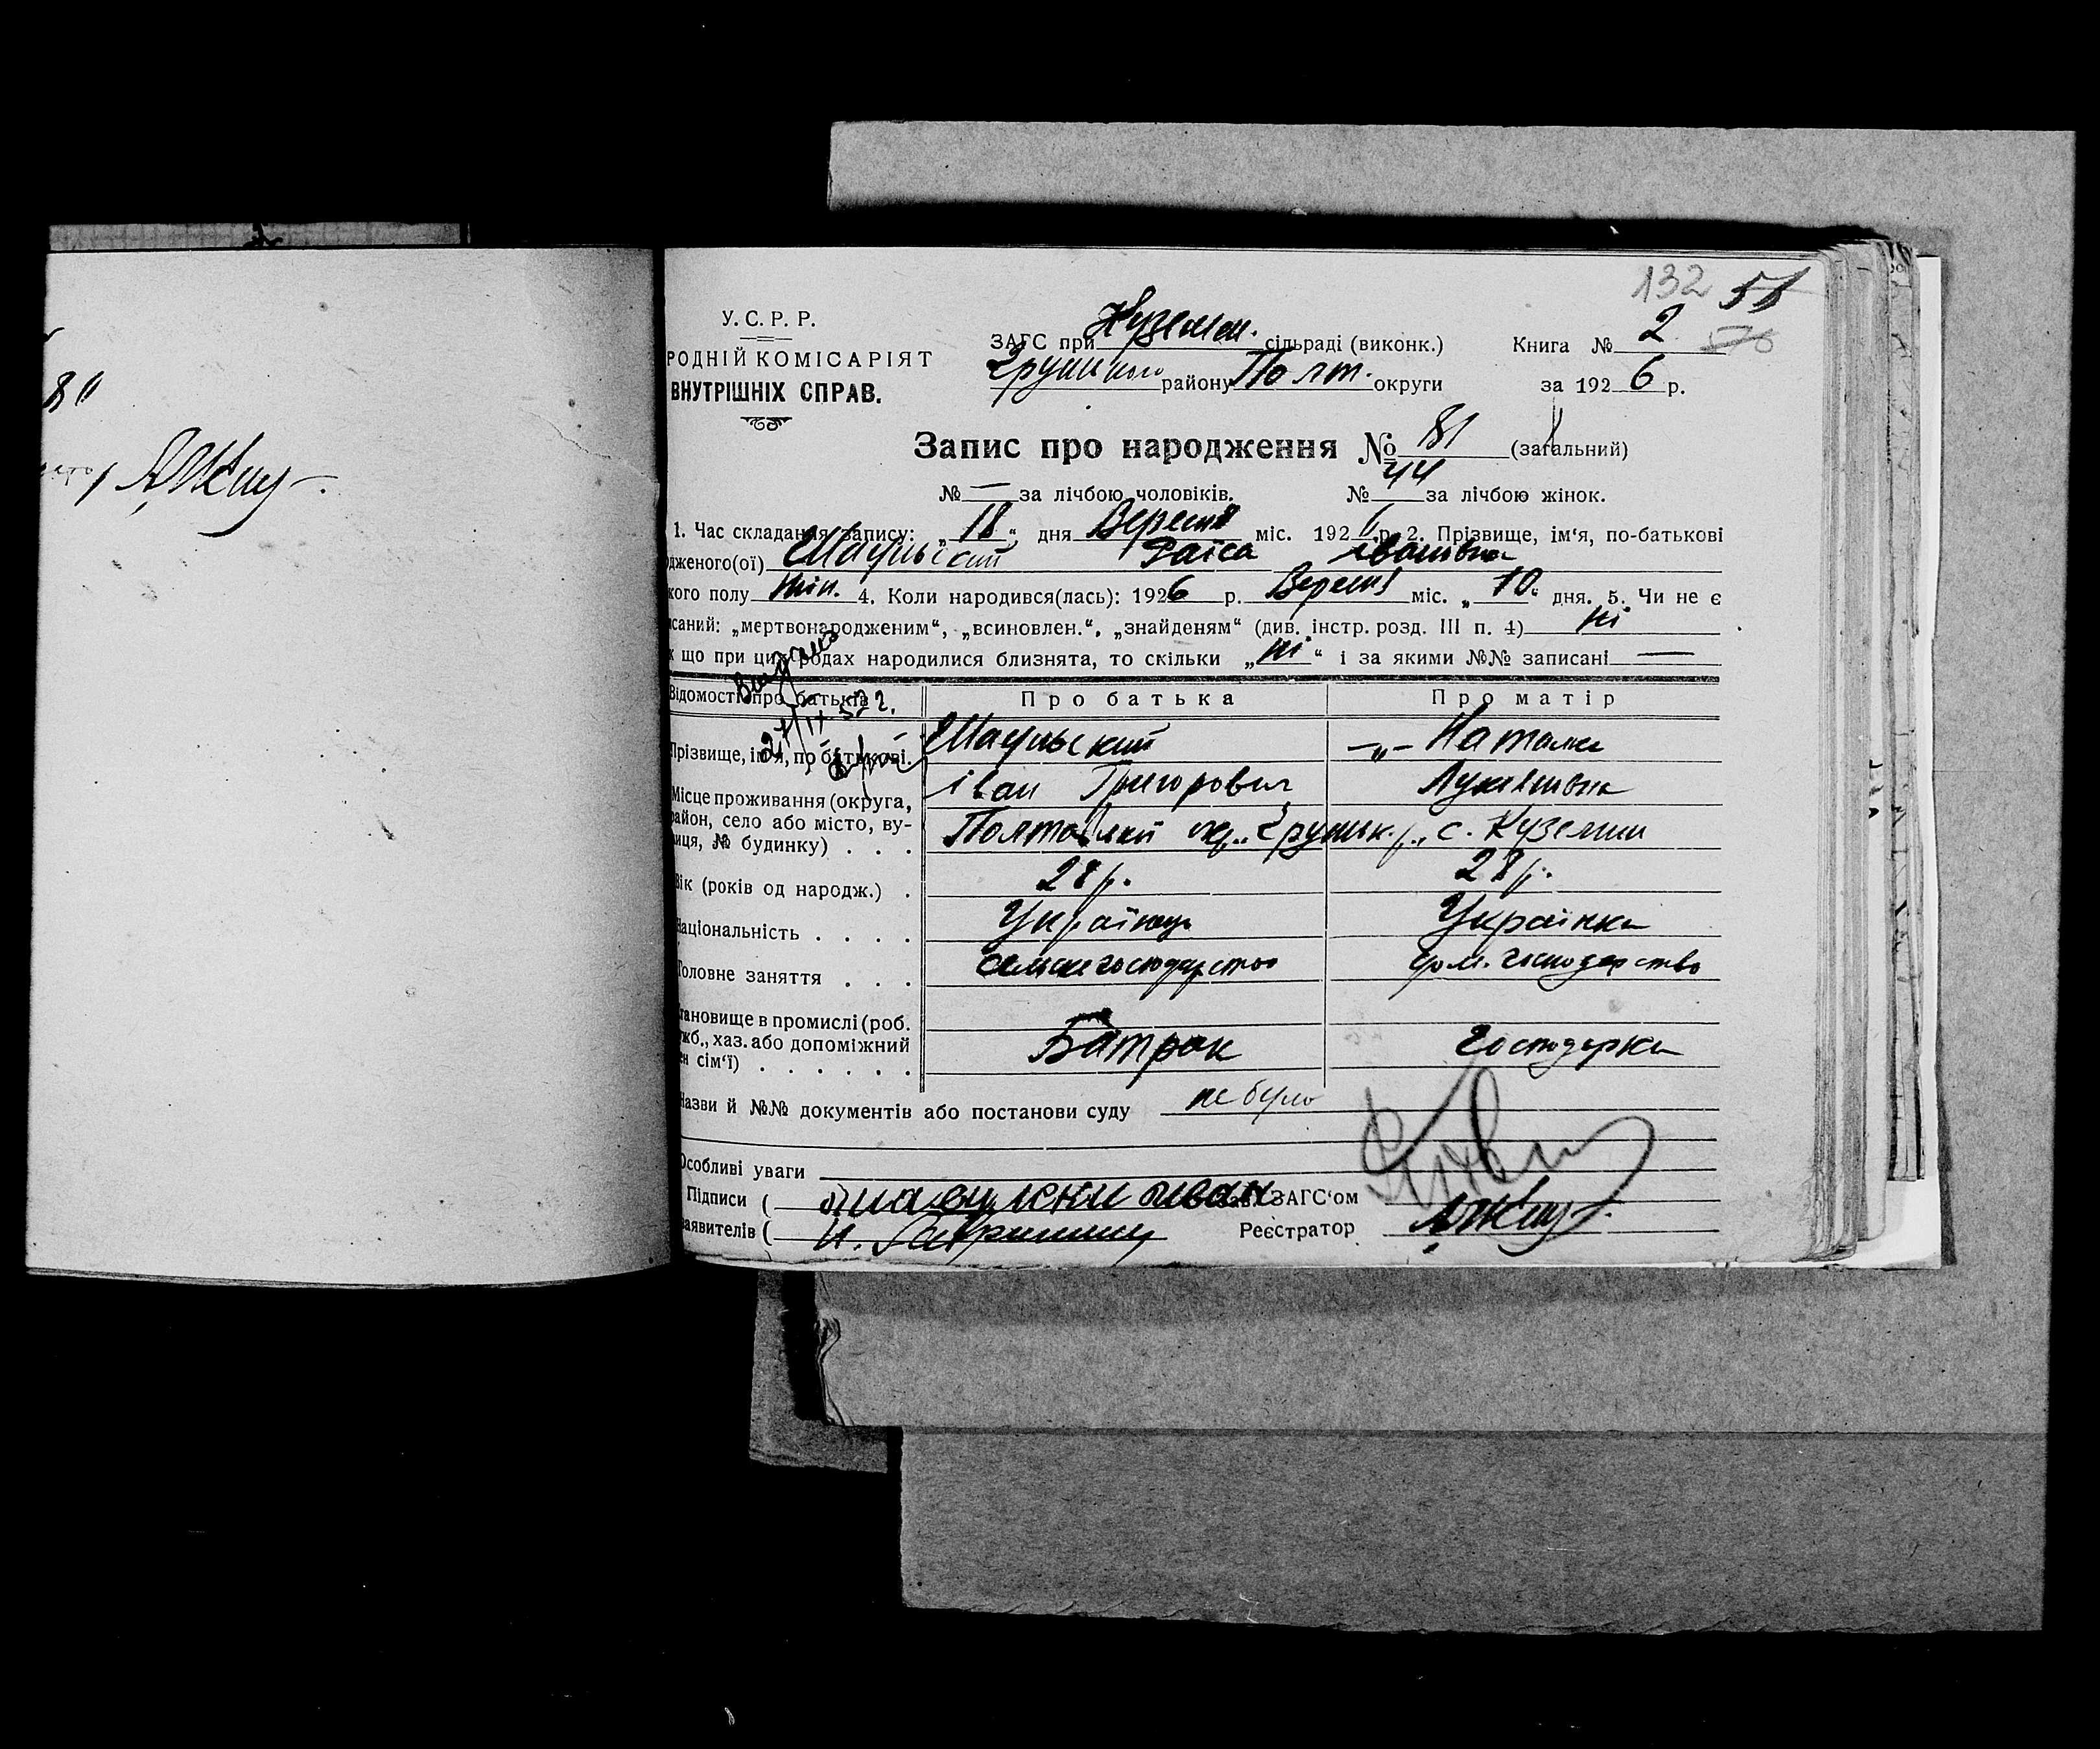 132 51
У. С. Р. Р.
РОДНІЙ КОМІСАРІЯТ
ВНУТРІШНІХ СПРАВ.
ЗАГС при Куземен. сільраді (виконк.)
району Полт. округи
Книга № 2
за 1926 р.
Запис про народження № 81 (загальний)
№ — за лічбою чоловіків. № 44 за лічбою жінок.
1. Час складання запису: „18“ дня Вересня міс. 1926 р. 2. Прізвище, ім‘я, по-батькові
дженого(ої) Раїса Іванівна
кого полу жін. 4. Коли народився(лась): 1926 р. Вересня міс. „10“ дня. 5. Чи не є
исаний: „мертвонародженим“, „всиновлен.“, „знайденям“ (див. інстр. розд. III п. 4) ні
що при цих родах народилися близнята, то скільки „ні“ і за якими №№ записані —
Відомості про батьків Про батька Про матір
Прізвище, ім‘я, по батькові. —„— Наталка
Іван Григорович
Місце проживання (округа,
район, село або місто, ву-
лиця, № будинку) . . . Полтавский окр., с. Куземин
Вік (років од народж.) . 28 р. 28 р.
Національність . . . . Українець Українка
Головне заняття . . . Сельске господарство дом. господарство
тановище в промислі (роб.
жб., хаз. або допоміжний
ен сім‘ї) . . . . . . Батрак Господарка
Назви й №№ документів або постанови суду не було
Особливі уваги
Підписи ( Иван ЗАГС‘ом
заявителів ( Реєстратор
видано
80